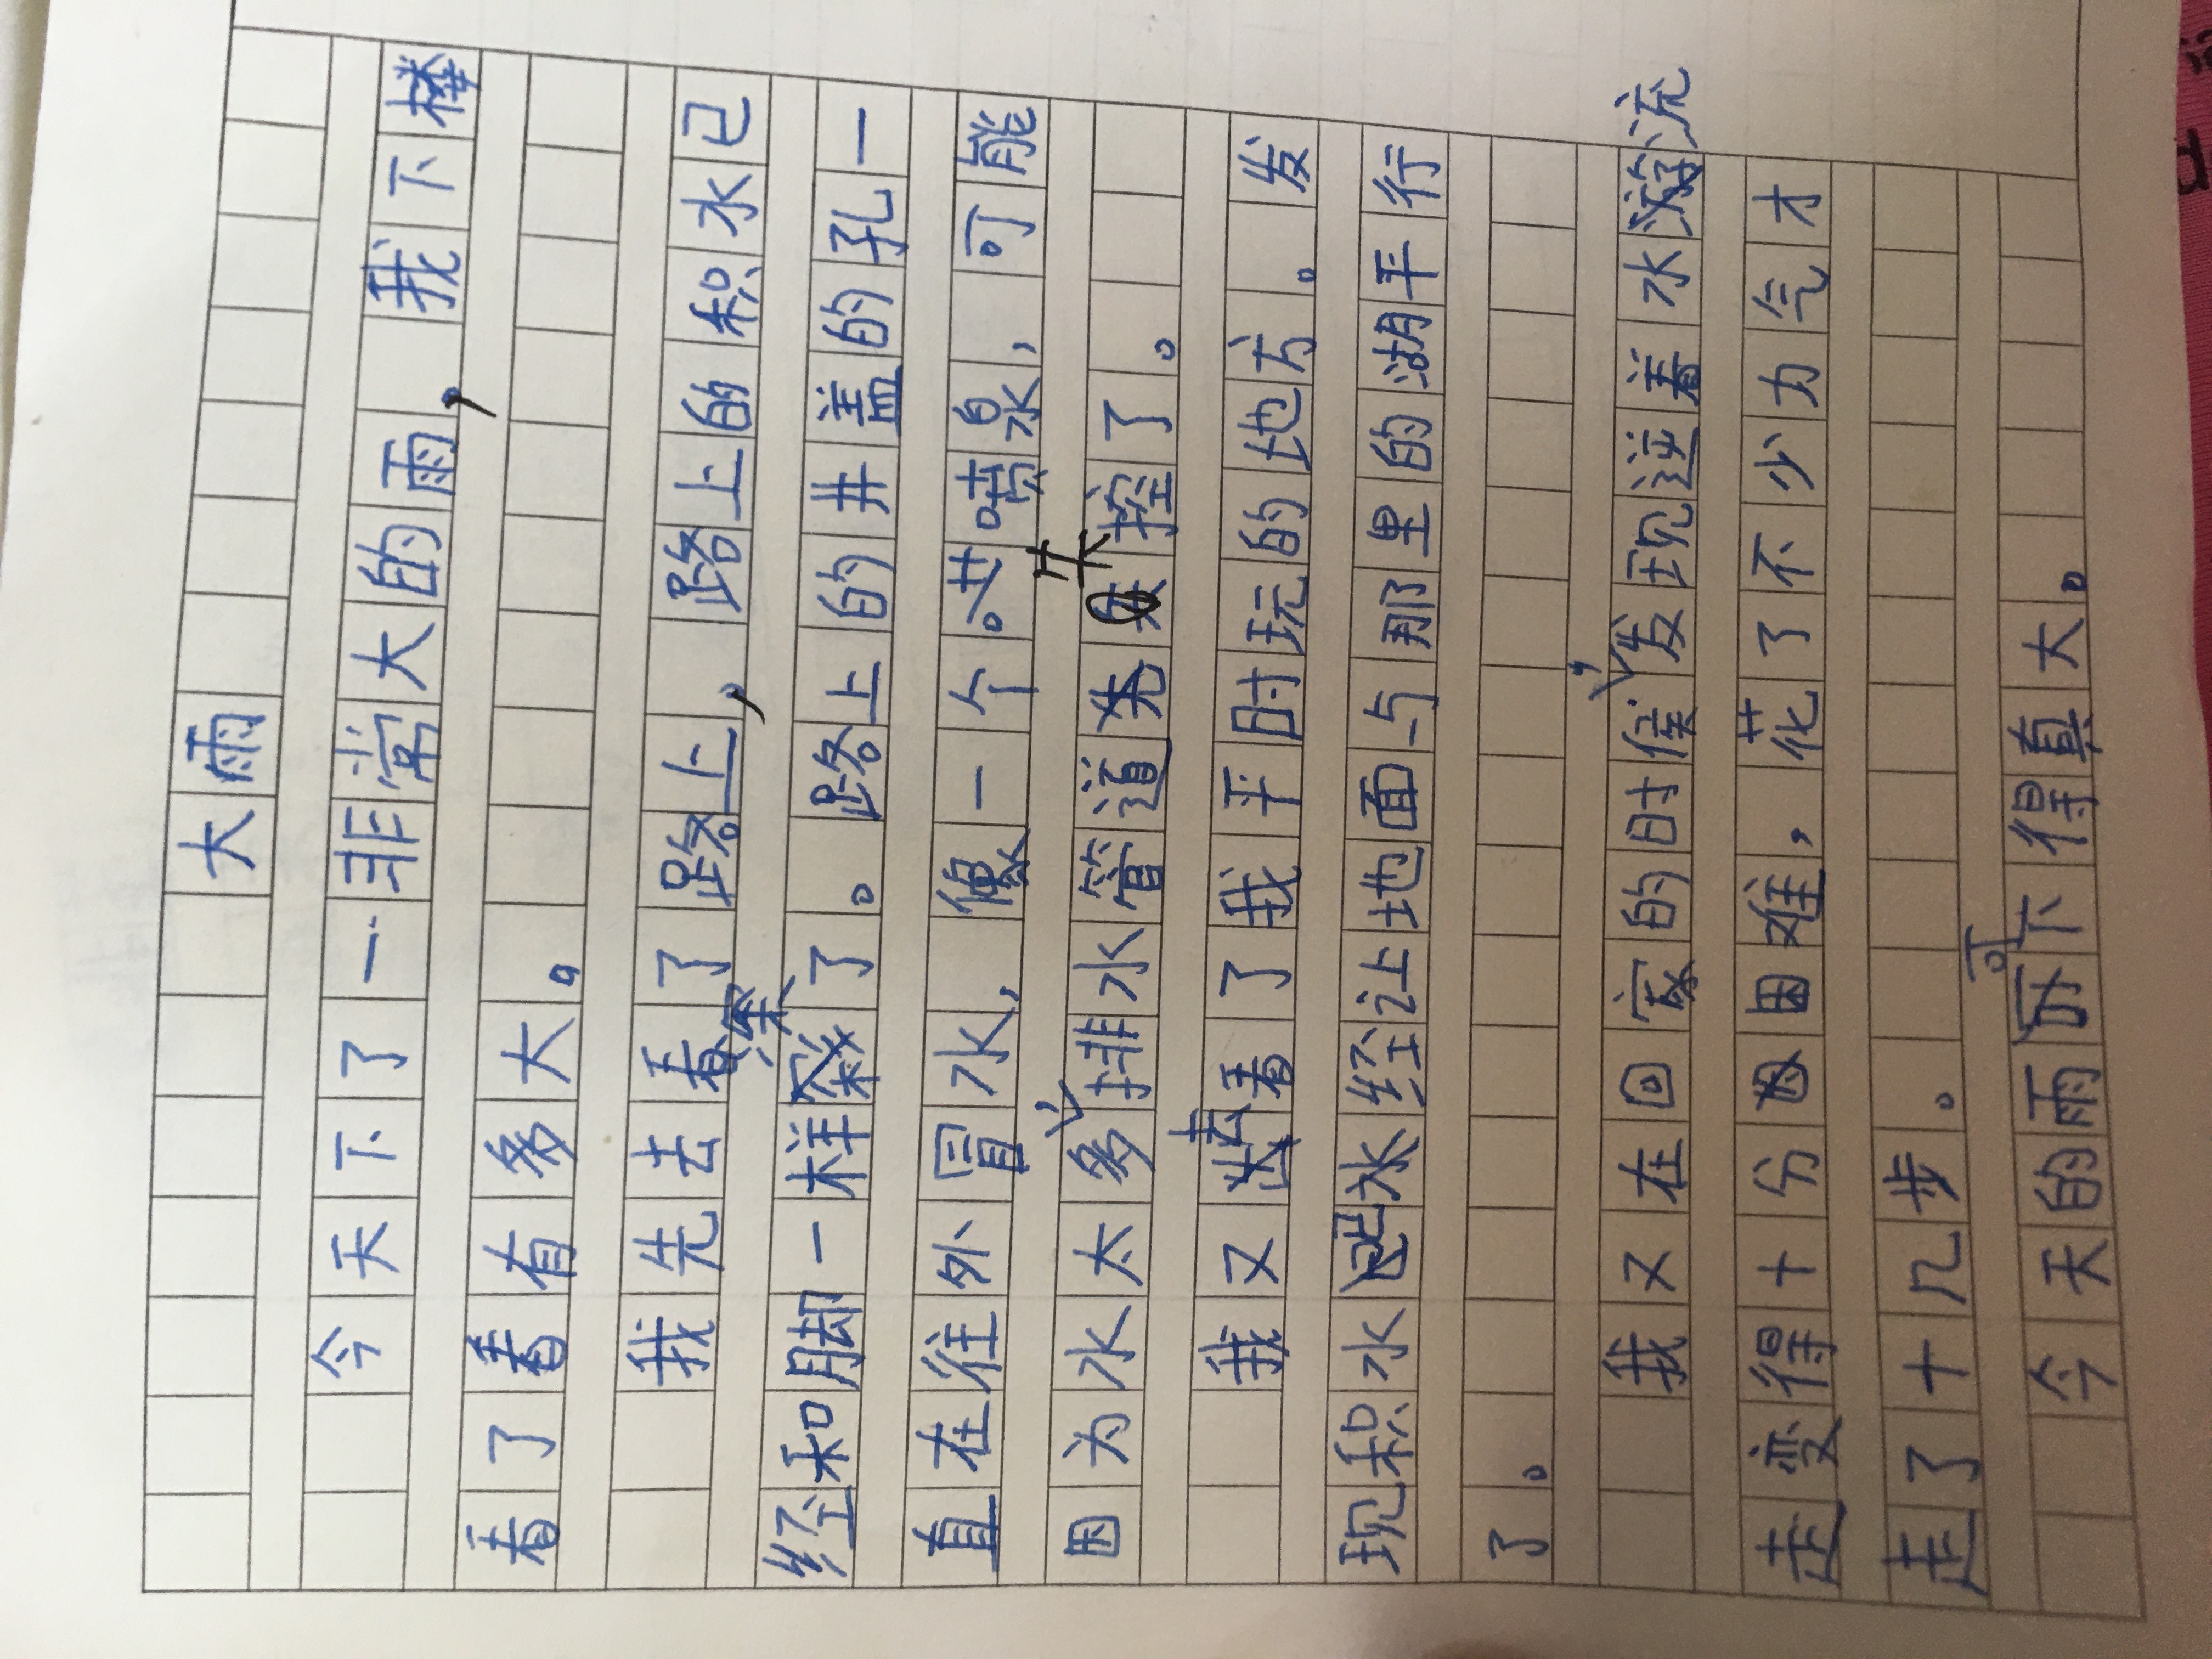 大雨
今天下了一非常大的雨，我下楼
看了看有多大。
我先去看了路上，路上的积水已
经和脚一样深了。路上的井盖的孔一
直在往外冒水，像一个喷泉，可能
因为水太多，排水管道失控了。
我又去看了我平时玩的地方。发
现积水已经让地面与那里的湖平行
了。
我又在回家的时候，发现逆着水流
走变得十分困难，花了不少力气才
走了十几步。
今天的雨可下得真大。